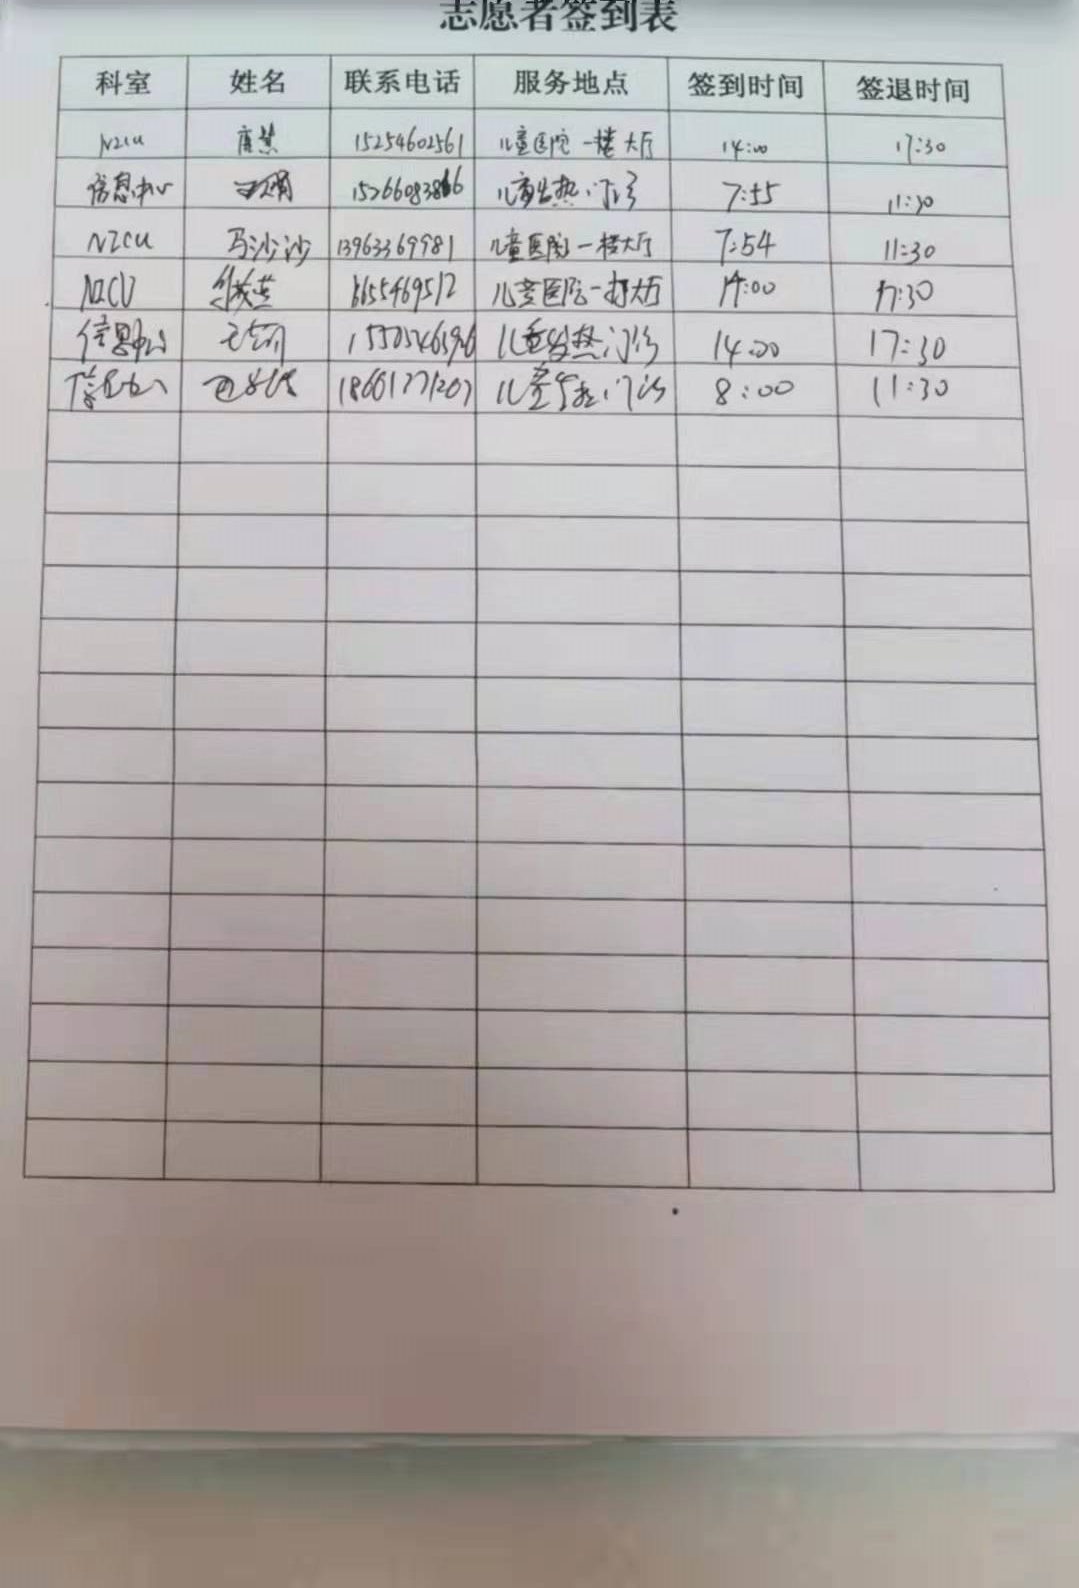 志愿者签到表
科室 姓名 联系电话 服务地点 签到时间 签退时间
NICU 唐慧 15254602561 儿童医院一楼大厅 14:00 17:30
信息中心 15266083866 儿童发热门诊 7:55 11:30
NICU 马沙沙 13963369981 儿童医院一楼大厅 7:54 11:30
NICU 儿童医院一楼大厅 14:00 17:30
信息中心 儿童发热门诊 14:00 17:30
信息中心 18661271207 儿童发热门诊 8:00 11:30